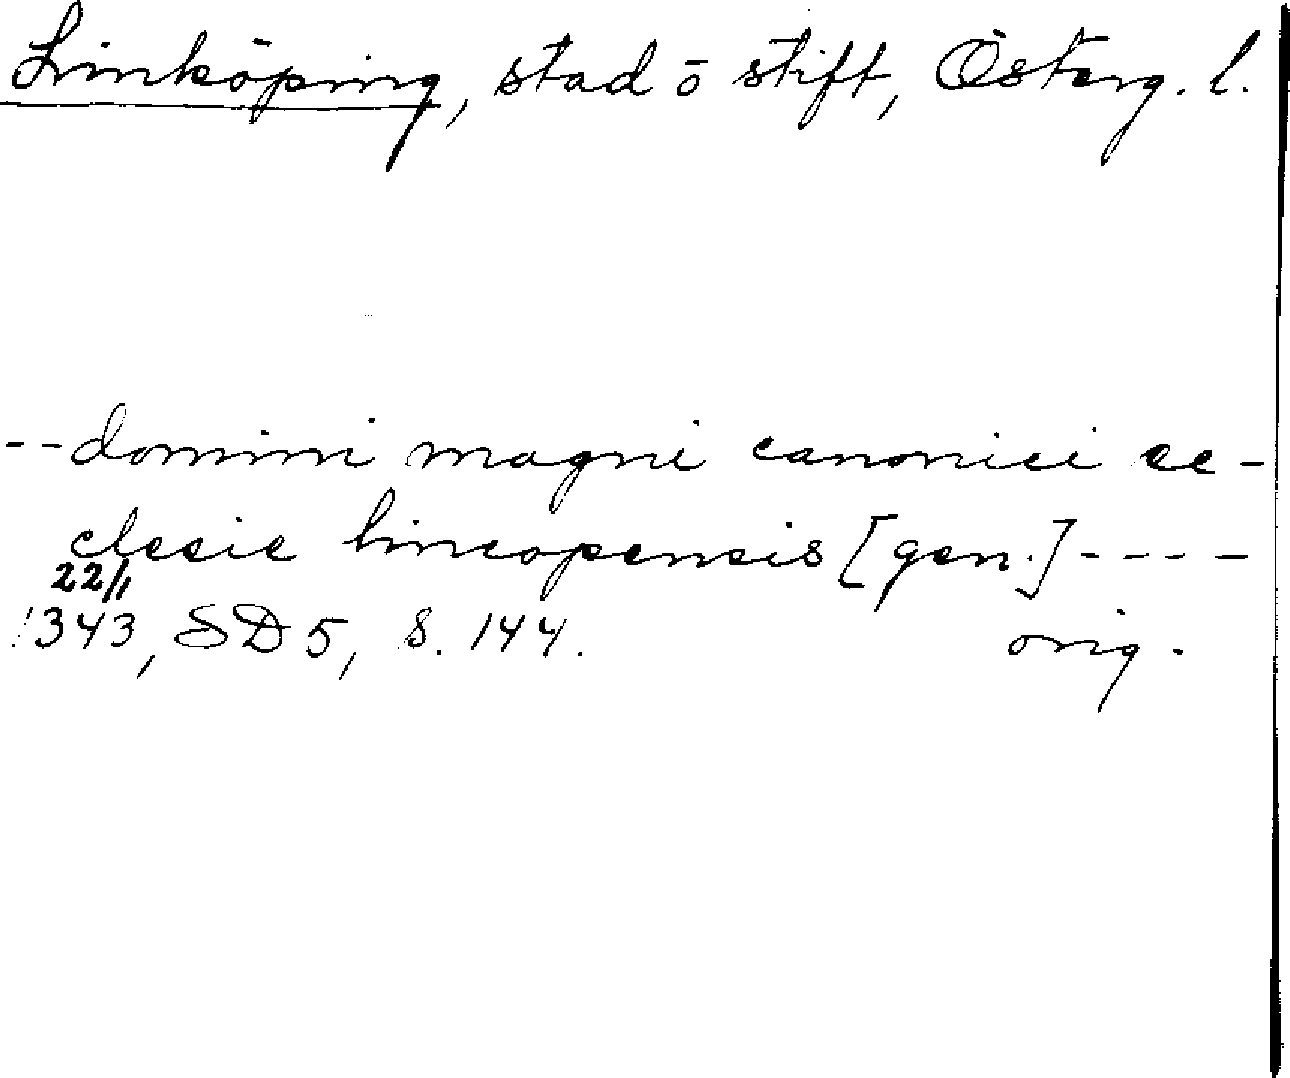 Linköping, stad ō stift, Österg. l.
-- domini magni canonici ec-
clesie lincopensis [gen.] ----
22/1
1343, SD 5, S. 144. orig.